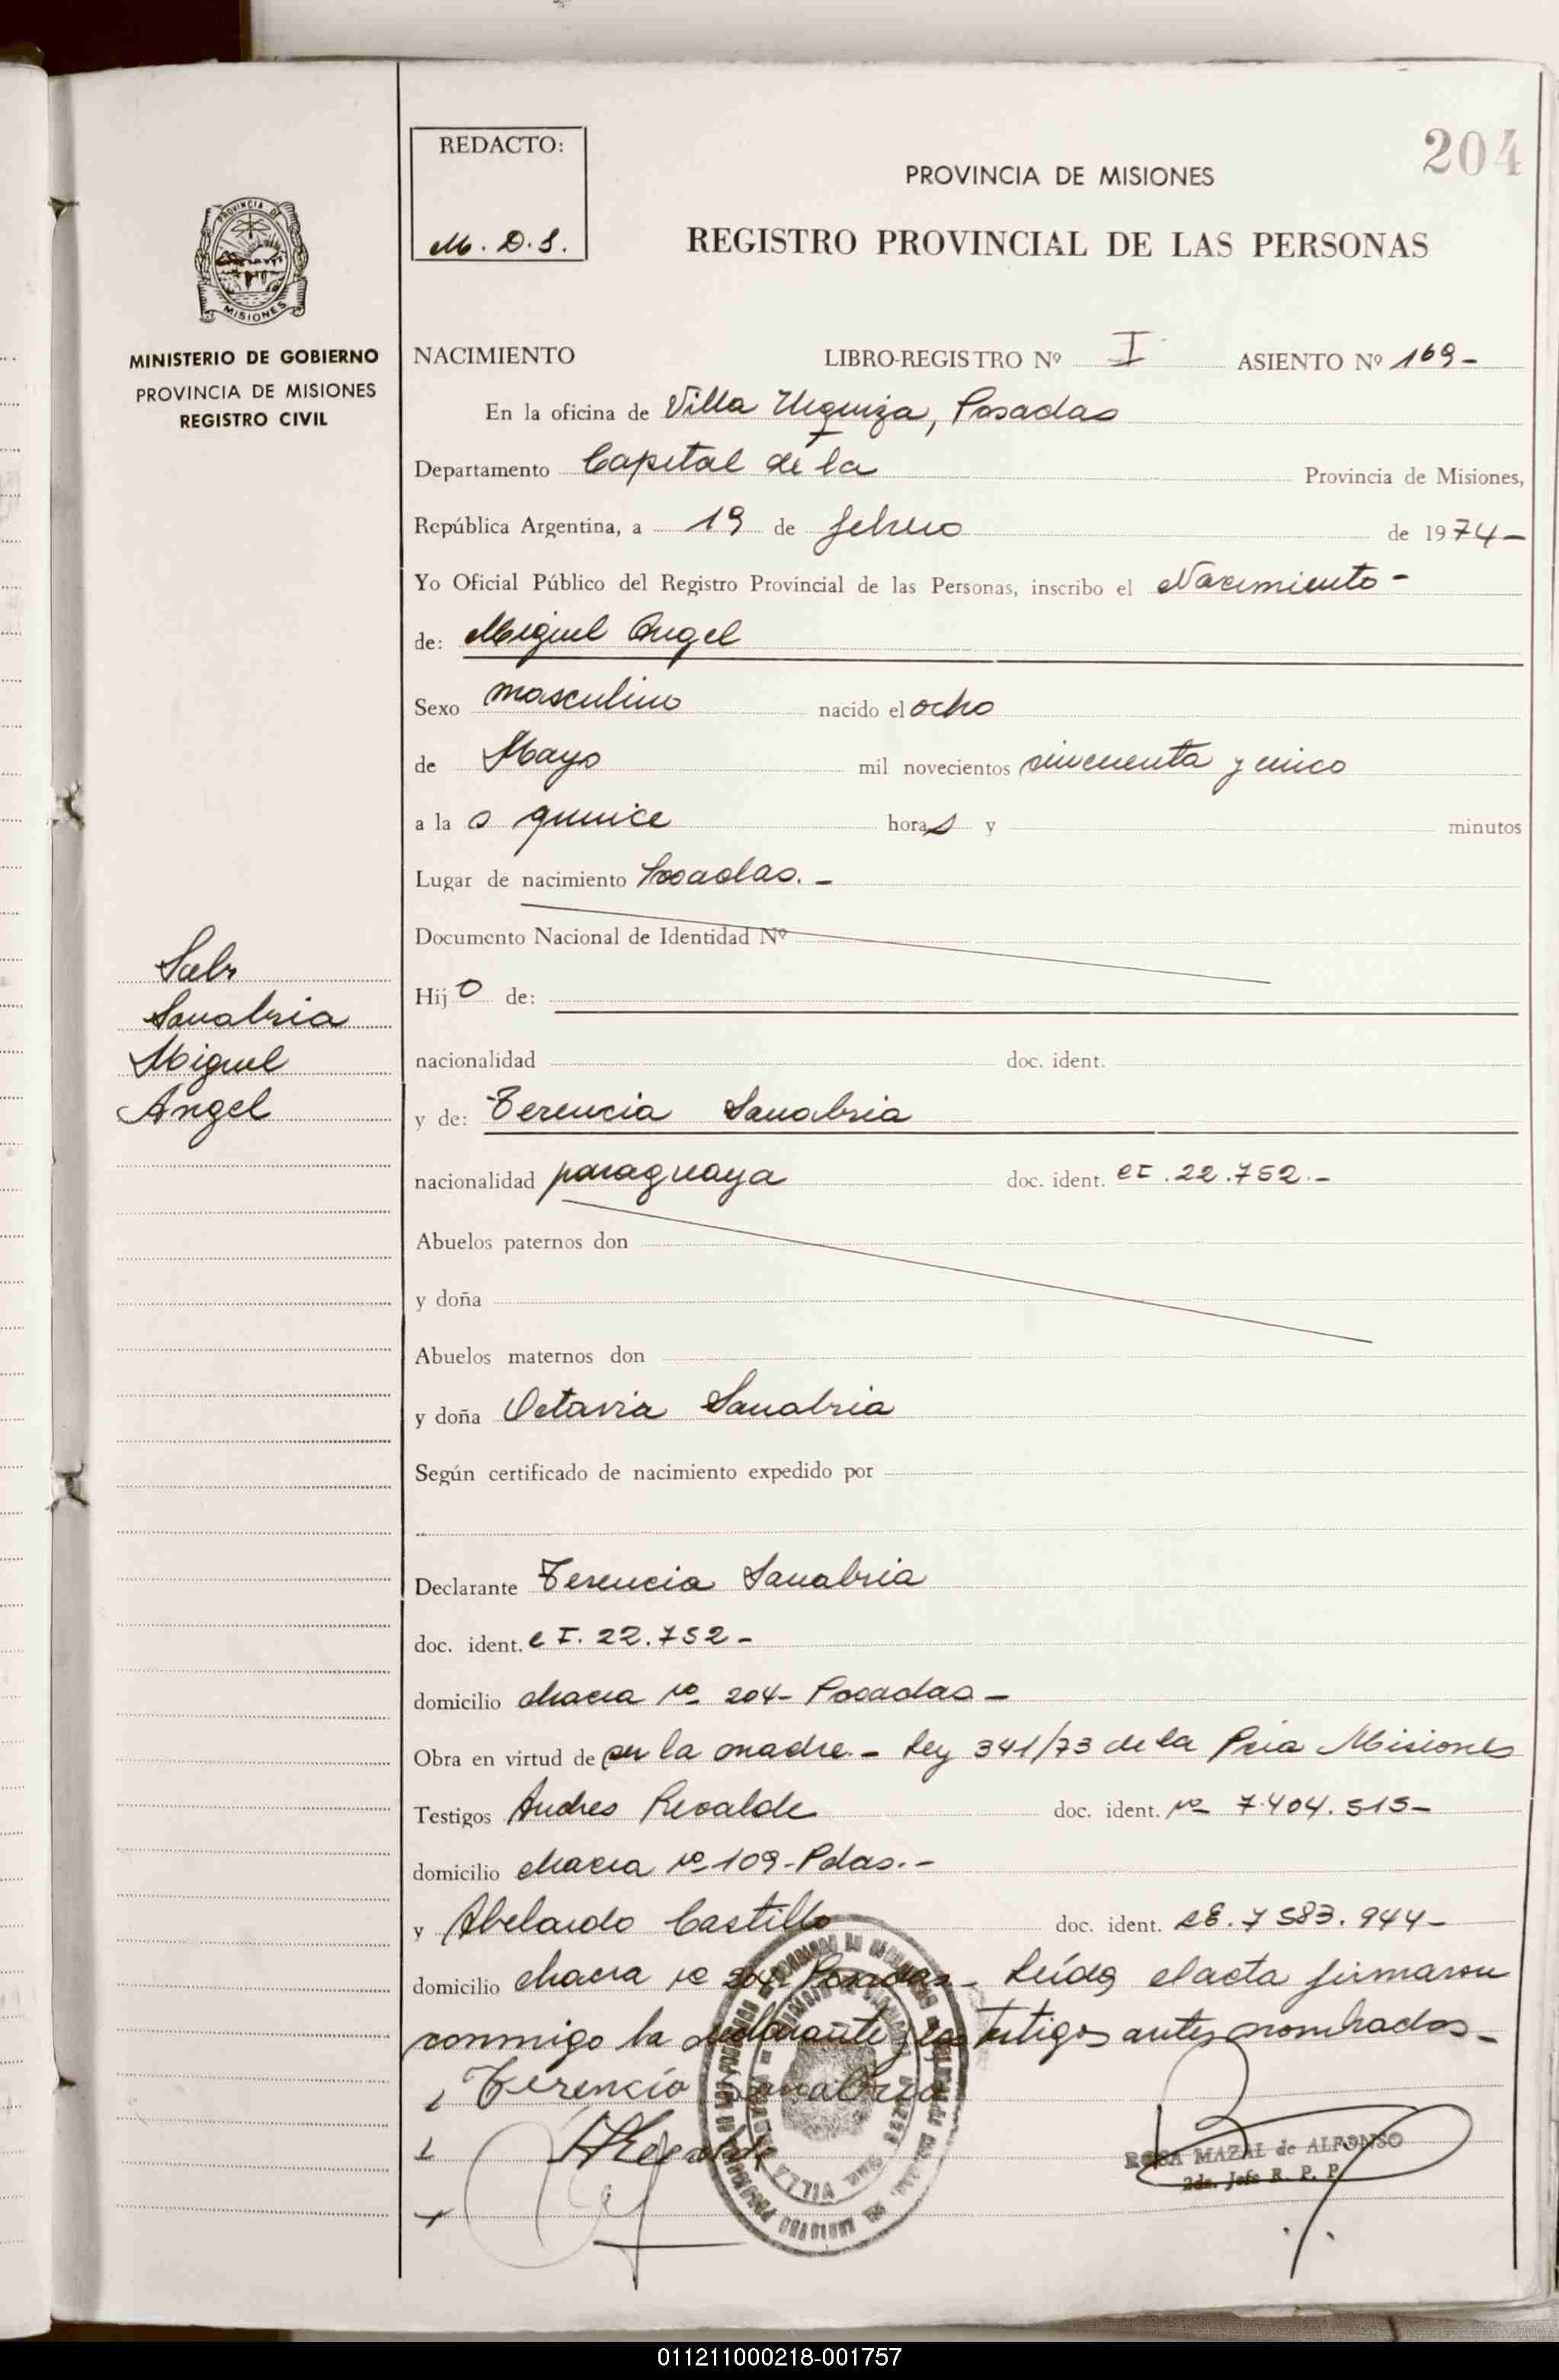 204
REDACTO:
M. D. S.
PROVINCIA DE MISIONES
REGISTRO PROVINCIAL DE LAS PERSONAS
PROVINCIA DE
MISIONES
MINISTERIO DE GOBIERNO
PROVINCIA DE MISIONES
REGISTRO CIVIL
NACIMIENTO LIBRO-REGISTRO Nº I ASIENTO Nº 169-
En la oficina de Villa Urquiza, Posadas
Departamento Capital de la Provincia de Misiones,
República Argentina, a 19 de febrero de 1974-
Yo Oficial Público del Registro Provincial de las Personas, inscribo el Nacimiento-
de: Miguel Angel
Sexo masculino nacido el ocho
de Mayo mil novecientos cincuenta y cinco
a las quince horas y minutos
Lugar de nacimiento Posadas.-
Documento Nacional de Identidad Nº
Hijo de:
nacionalidad doc. ident.
Sanabria
Miguel
Angel
y de: Terencia Sanabria
nacionalidad paraguaya doc. ident. CI.22.752.-
Abuelos paternos don
y doña
Abuelos maternos don
y doña Octavia Sanabria
Según certificado de nacimiento expedido por
Declarante Terencia Sanabria
doc. ident. CI. 22.752-
domicilio chacra Nº 204- Posadas-
Obra en virtud de ser la madre.- Ley 341/73 de la Pcia Misiones
Testigos Andres Recalde doc. ident. Nº 7.404.515-
domicilio chacra Nº 109-Pdas.-
y Abelardo Castillo doc. ident. 7583.944-
domicilio chacra Nº 204 Posadas- Leída el acta firmaron
conmigo la declarante y los testigos antes nombrados-
Terencia Sanabria
ROSA MAZAL de ALFONSO
2da. Jefe R. P. P.
VILLA
011211000218-001757